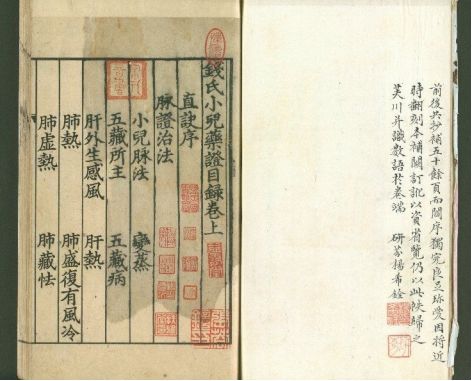 前後共抄補五十餘頁而闕序獨完良足珍愛因将近
時翻刻本補闕訂訛以資省覽仍以此帙歸之
芙川并識數語於卷端 研芬楊希銓
錢氏小兒藥證目録卷上
直訣序
脉證治法
小兒脉法 變蒸
五藏所主 五藏病
肝外生感風 肝熱
肺熱 肺盛復有風冷
肺虛熱 肺藏怯